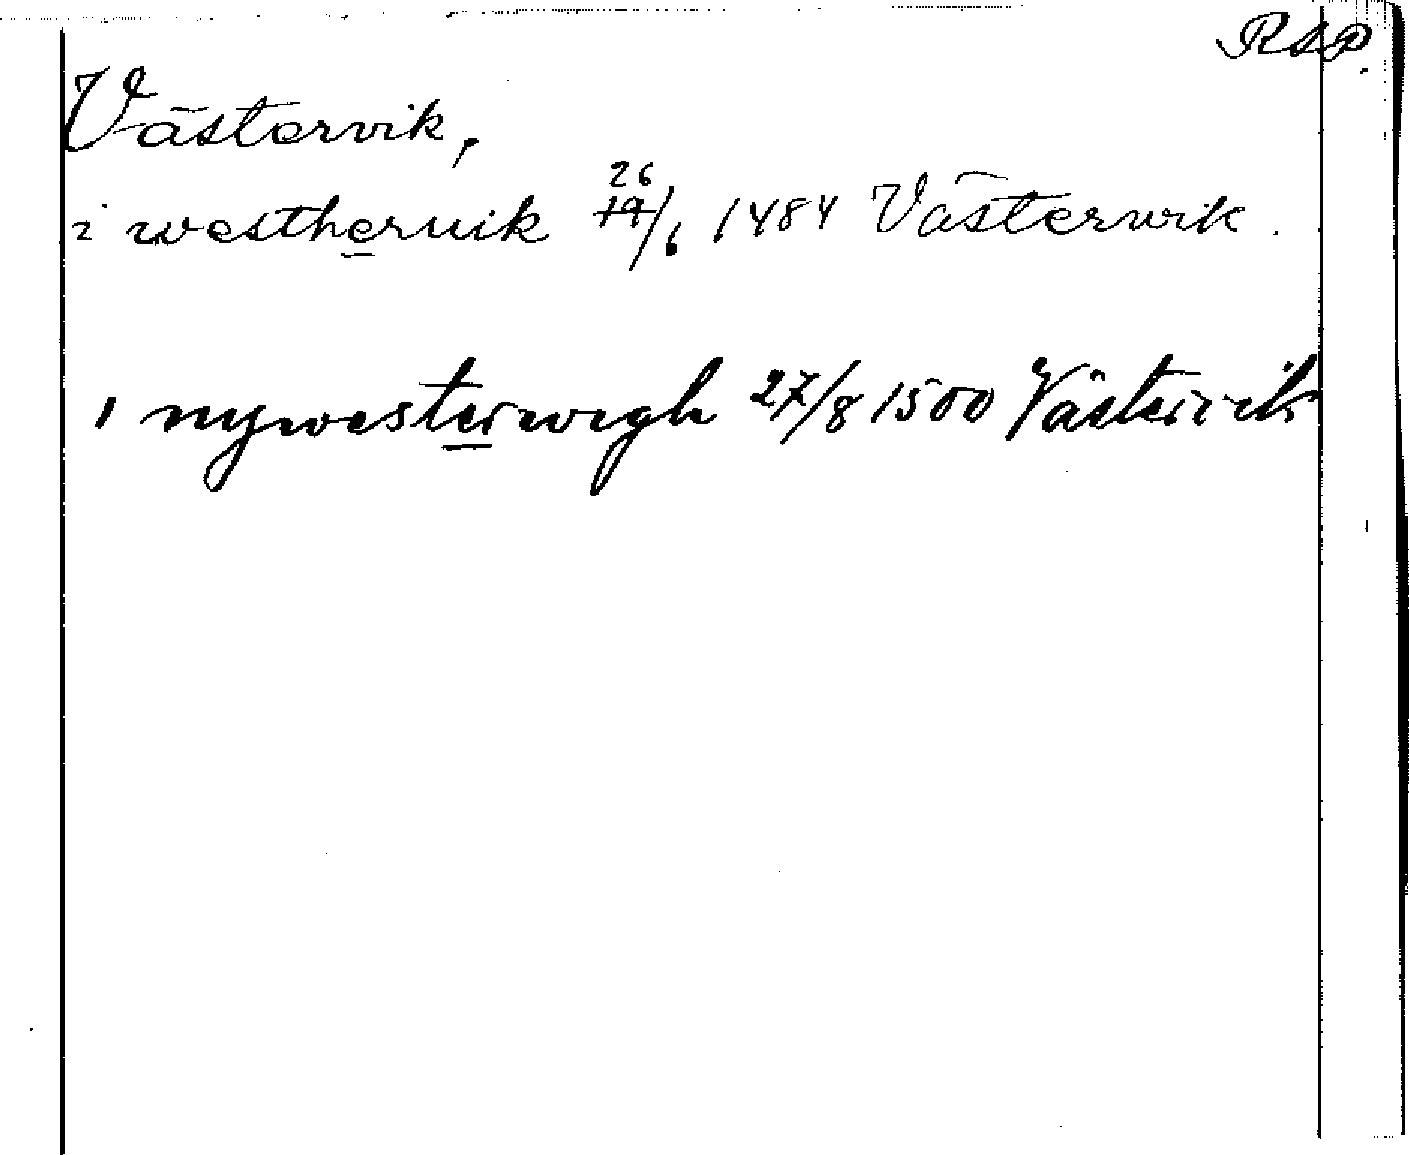 RAP.
Västervik,
i westheruik 26/6 1484 Västervik.
i nywesterwigh 27/8 1500 Västervik